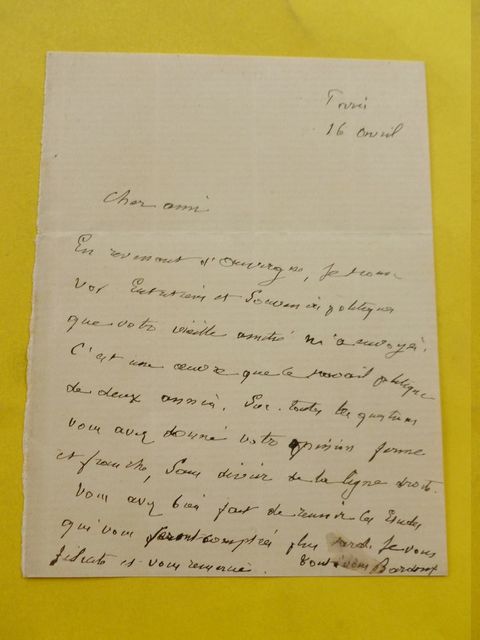 Paris
16 avril
Cher ami
En revenant d'Auvergne, je trouve
vos Entretiens et Souvenirs politiques
que votre vieille amitié m'a envoyés.
C'est une œuvre que ce travail politique
de deux années. Sur toutes les questions
vous avez donné votre opinion ferme
et franche, sans dévier de la ligne droite.
Vous avez bien fait de réunir les études
qui vous seront comptées plus tard. Je vous
félicite et vous remercie. Tout à vous Bardoux